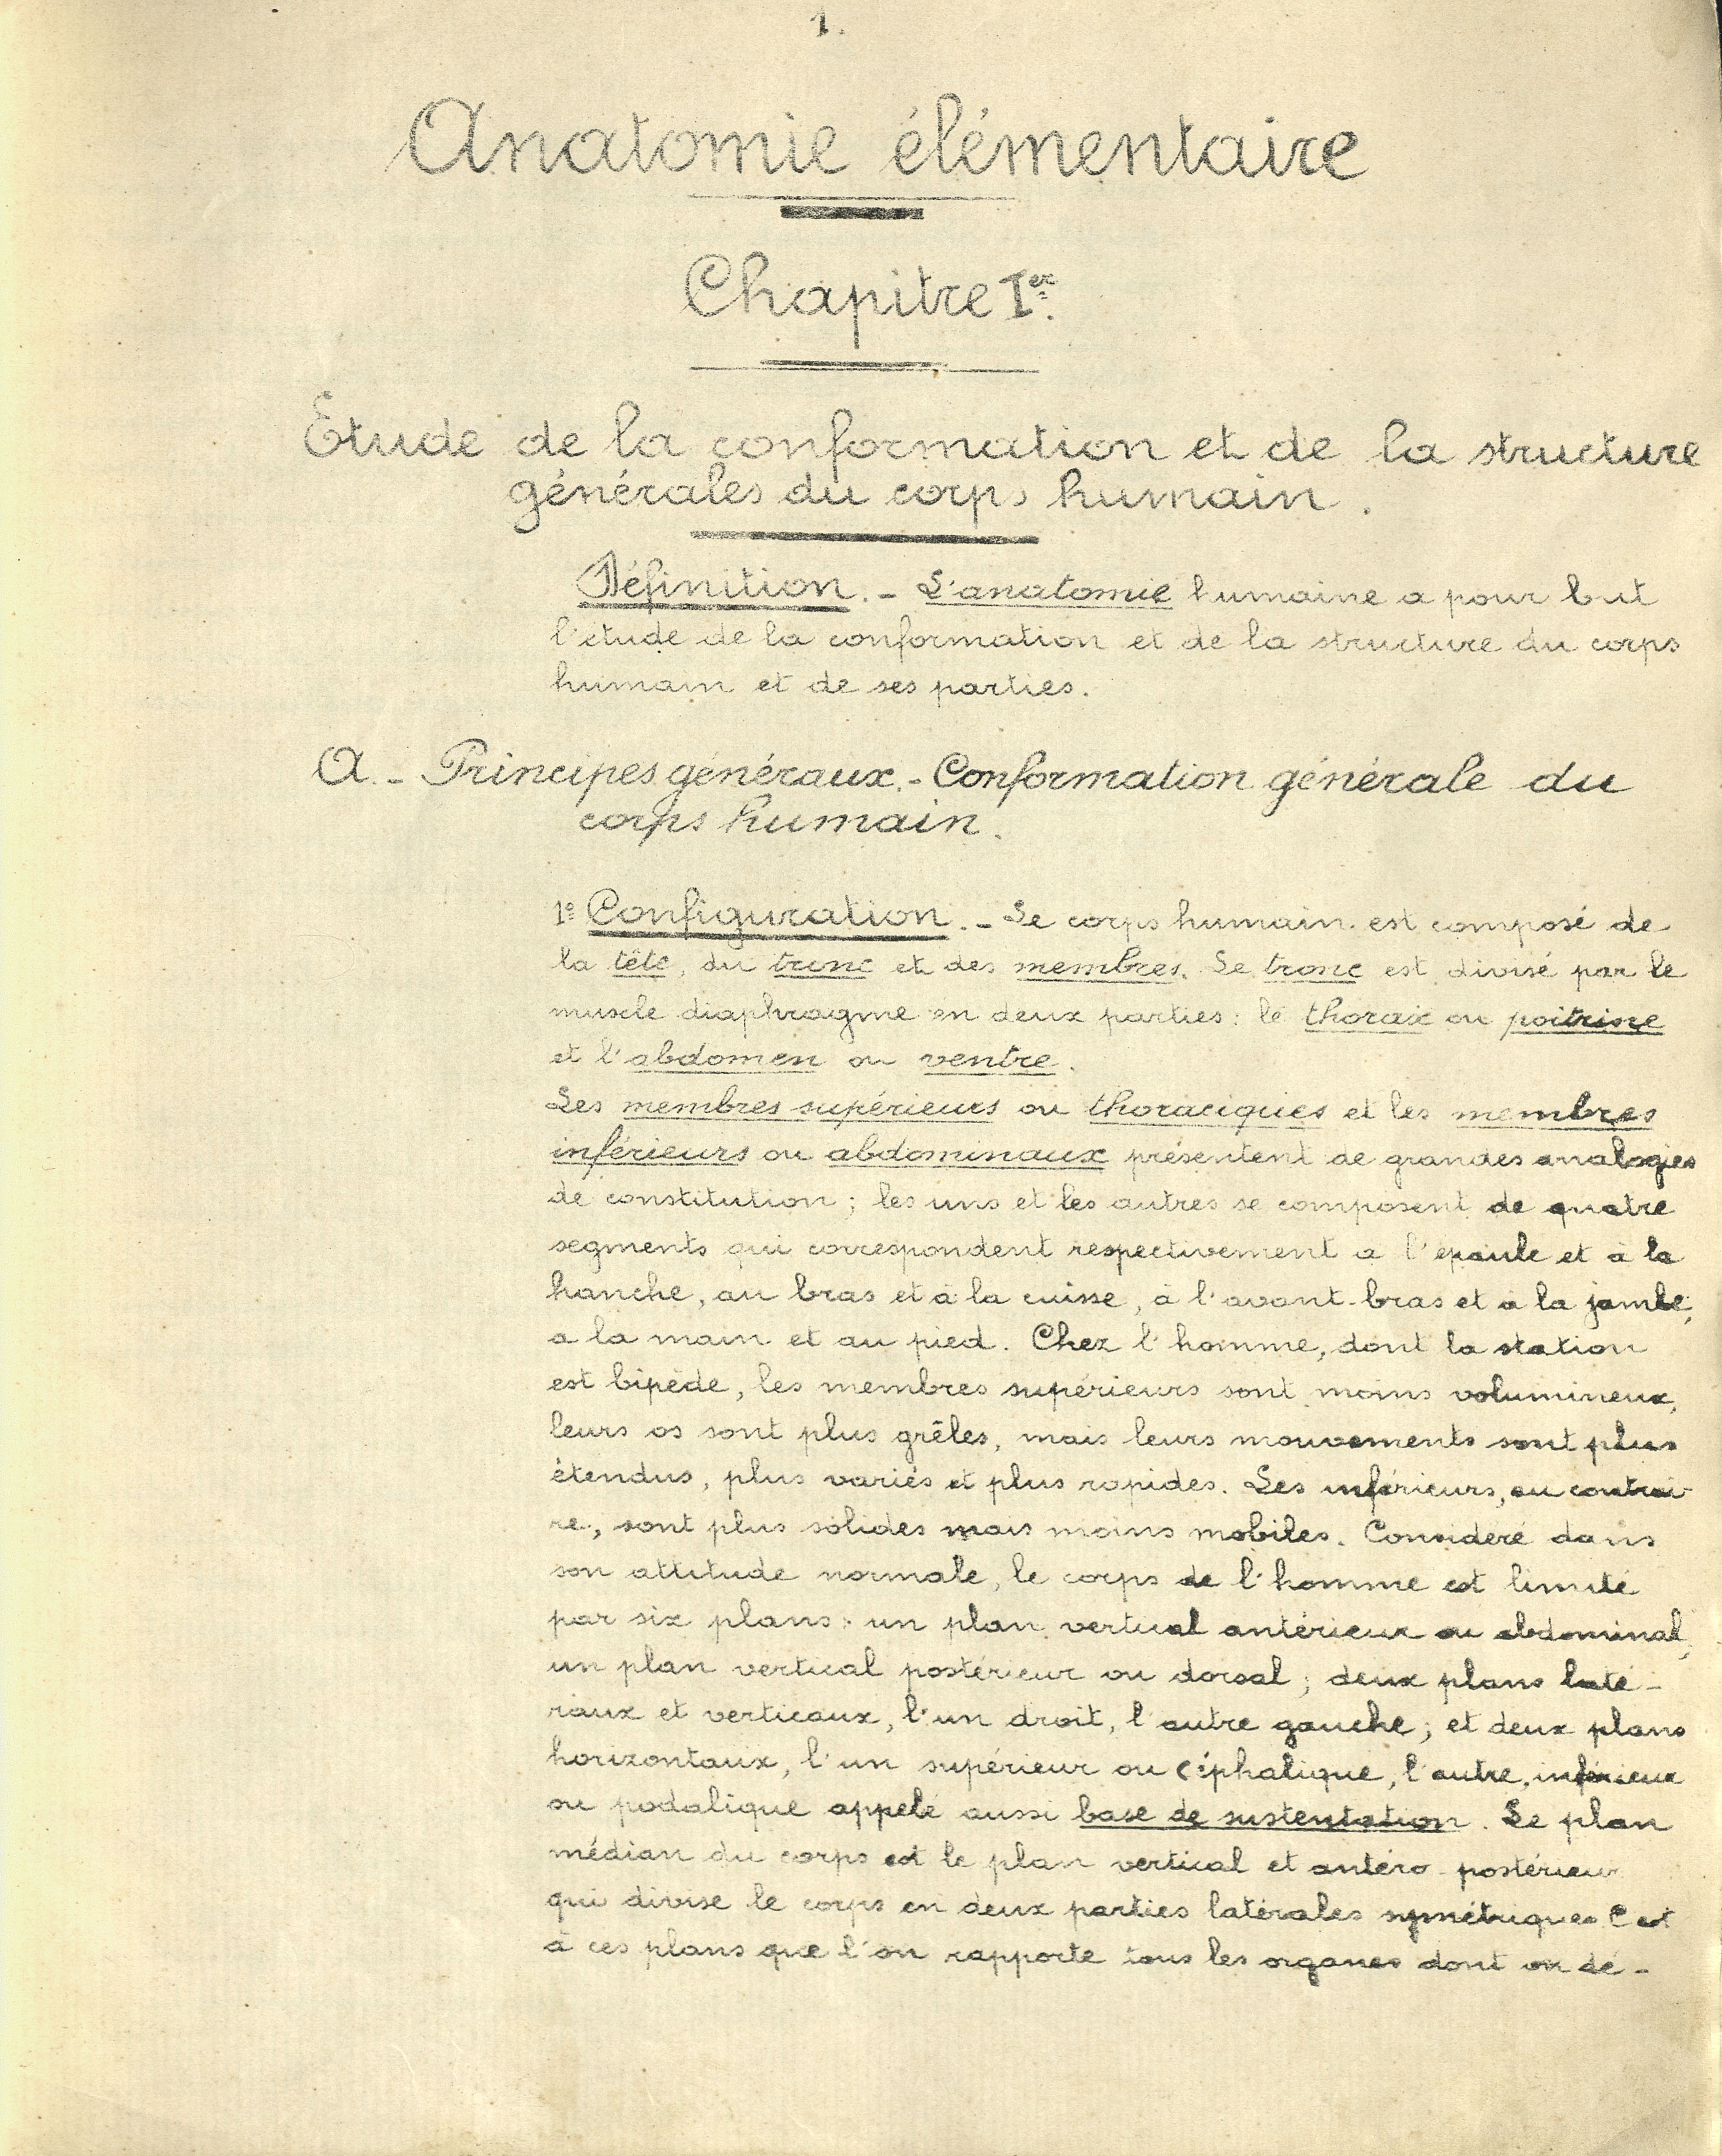 1.
Anatomie élémentaire
Chapitre Ier.
Etude de la conformation et de la structure
générales du corps humain.
Définition. - L'anatomie humaine a pour but
l'étude de la conformation et de la structure du corps
humain et de ses parties.
A. - Principes généraux. - Conformation générale du
corps humain.
1º Configuration. - Le corps humain est composé de
la tête, du tronc et des membres. Le tronc est divisé par le
muscle diaphragme en deux parties: le thorax ou poitrine
et l'abdomen ou ventre.
Les membres supérieurs ou thoraciques et les membres
inférieurs ou abdominaux présentent de grandes analogies
de constitution; les uns et les autres se composent de quatre
segments qui correspondent respectivement a l'épaule et à la
hanche, au bras et à la cuisse, à l'avant-bras et a la jambe,
a la main et au pied. Chez l'homme, dont la station
est bipède, les membres supérieurs sont moins volumineux,
leurs os sont plus grêles, mais leurs mouvements sont plus
étendus, plus variés et plus rapides. Les inférieurs, au contrai-
re, sont plus solides mais moins mobiles. Considéré dans
son attitude normale, le corps de l'homme est limité
par six plans: un plan vertical antérieur ou abdominal,
un plan vertical postérieur ou dorsal; deux plans laté-
raux et verticaux, l'un droit, l'autre gauche; et deux plans
horizontaux, l'un supérieur ou céphalique, l'autre inférieur
ou podalique appelé aussi base de sustentation. Le plan
médian du corps est le plan vertical et antéro-postérieur
qui divise le corps en deux parties latérales symétriques C'est
à ces plans que l'on rapporte tous les organes dont on dé-